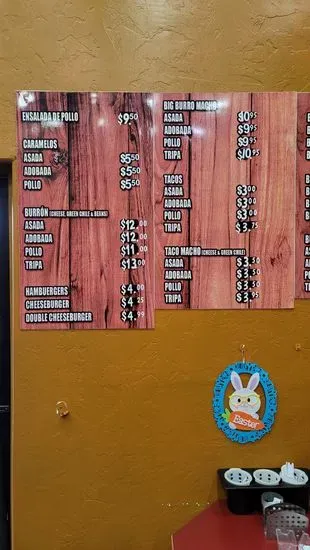 ENSALADA DE POLLO $9.50
CARAMELOS
ASADA $5.50
ADOBADA $5.50
POLLO $5.50
BURRÓN (CHEESE, GREEN CHILE & BEANS)
ASADA $12.00
ADOBADA $12.00
POLLO $11.00
TRIPA $13.00
HAMBUERGERS $4.00
CHEESEBURGER $4.25
DOUBLE CHEESEBURGER $4.99
BIG BURRO MACHO
ASADA $10.95
ADOBADA $9.95
POLLO $9.95
TRIPA $10.95
TACOS
ASADA $3.00
ADOBADA $3.00
POLLO $3.00
TRIPA $3.75
TACO MACHO (CHEESE & GREEN CHILE)
ASADA $3.50
ADOBADA $3.50
POLLO $3.50
TRIPA $3.95
Easter